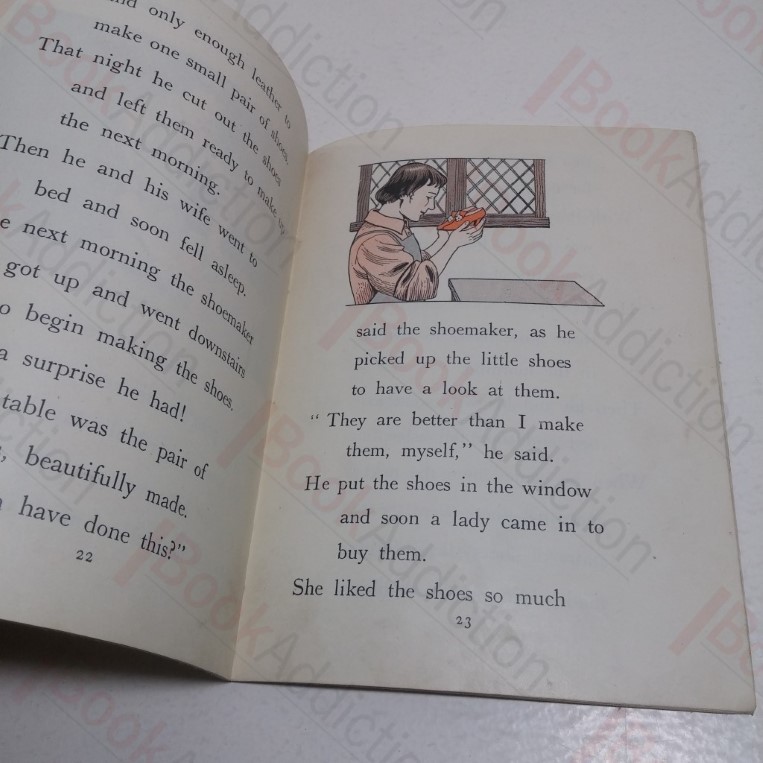 only enough leather to
make one small pair of shoes.
That night he cut out the shoes
and left them ready to make up
the next morning.
Then he and his wife went to
bed and soon fell asleep.
next morning the shoemaker
got up and went downstairs
begin making the shoes.
a surprise he had!
table was the pair of
beautifully made.
have done this?”
22
said the shoemaker, as he
picked up the little shoes
to have a look at them.
“ They are better than I make
them, myself,” he said.
He put the shoes in the window
and soon a lady came in to
buy them.
She liked the shoes so much
23
BookAddiction